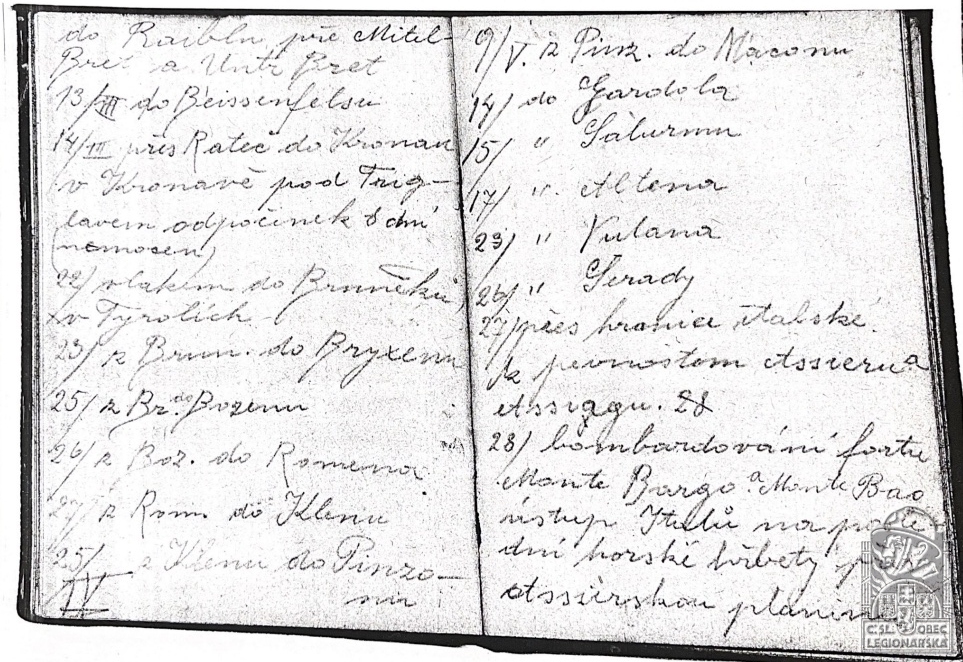 do Raiblu pře Mitel-
Bret a Untr Bret
13/III do Beissenfelsu
14/III přes Rateč do Kronau
v Kronavě pod Trig-
lavem odpočinek 8 dní
(nemocen)
22/ vlakem do Bruněku
v Tyrolích
23/ z Brun. do Bryxenu
25/ z Br. do Bozenu
26/ z Boz. do Romena
27/ z Rom. do Klenu
25/IV z Klenu do Pinzo-
nu
9/V. z Pinz. do Maconu
14/ do Gardola
15/ " Salurnu
17/ " Altena
23/ " Vulana
26/ " Serady
27/ přes hranice italské
k pevnostom Assieru a
Assiaggu. 28
28/ bombardování fortu
Monte Bargo a Monte Bao
ústup Italů na posle
dní horské hřbety
Assierskou planinou
ČSL. OBEC
LEGIONÁŘSKÁ